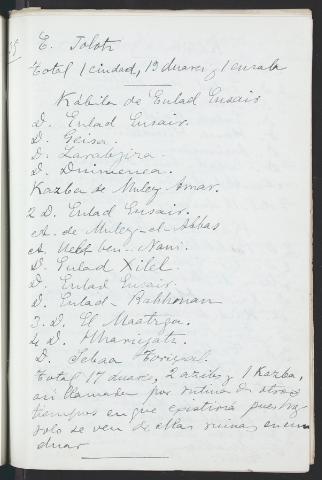 E. Tolotz
Total 1 ciudad, 19 duares y 1 enzala
Kábila de Eulad Ensair
D. Eulad Ensair.
D. Geisa.
D. Zarabjira
D. Duimenea.
Kazba de Muley Amar.
2 D. Eulad Ensair.
A. de Muley-el-Abbas
A. ben Nani.
D. Eulad Xilel.
D. Eulad Ensair.
D. Eulad-Rahhonan
3. D. El Maatrga.
4 D.
D. Sebaa
Total 17 duares, 2 azibs y 1 Kazba,
asi llamada por rutina de otros
tiempos en que existiria pues hoy
solo se ven de ellas ruinas en un
duar